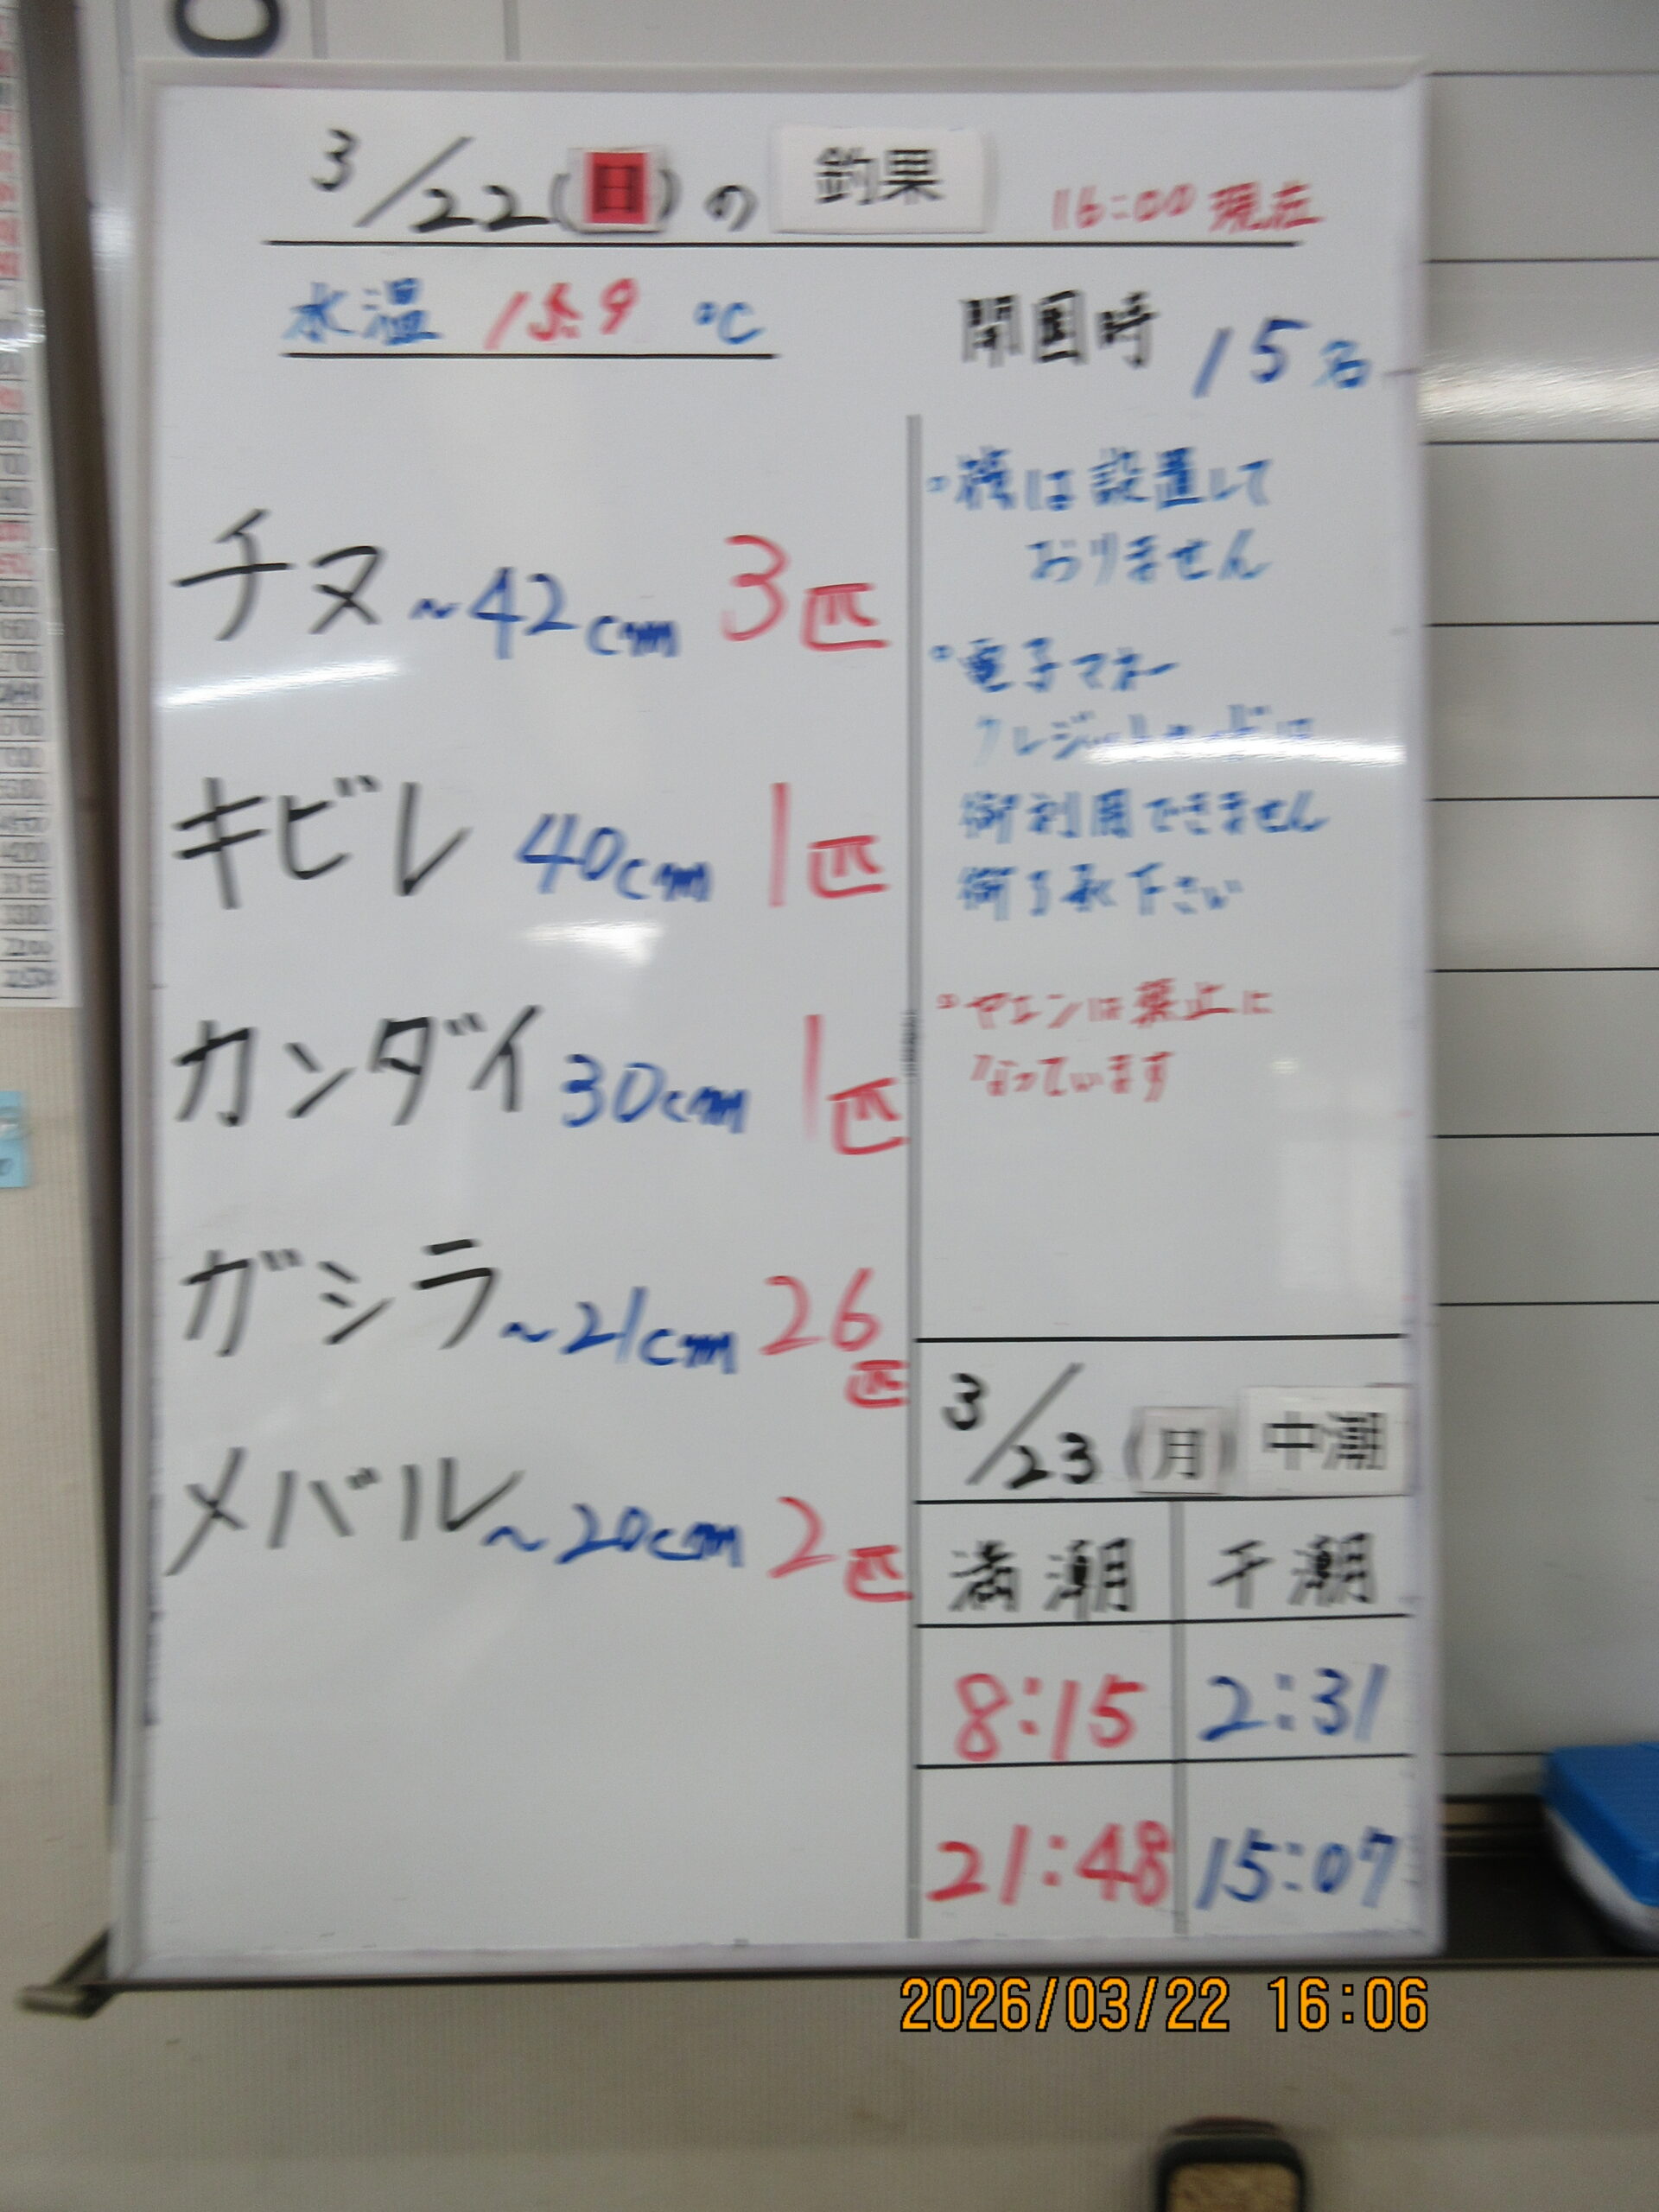 3/22(日)の 釣果 16:00現在
水温 15.9 ℃
開園時 15名
チヌ ~42cm 3匹
キビレ 40cm 1匹
カンダイ 30cm 1匹
ガシラ ~21cm 26匹
メバル ~20cm 2匹
は設置して
おりません
電子マネー
クレジットカードは
御利用できません
御了承下さい
ヤエンは禁止に
なっています
3/23(月) 中潮
満潮 干潮
8:15 2:31
21:48 15:07
2026/03/22 16:06